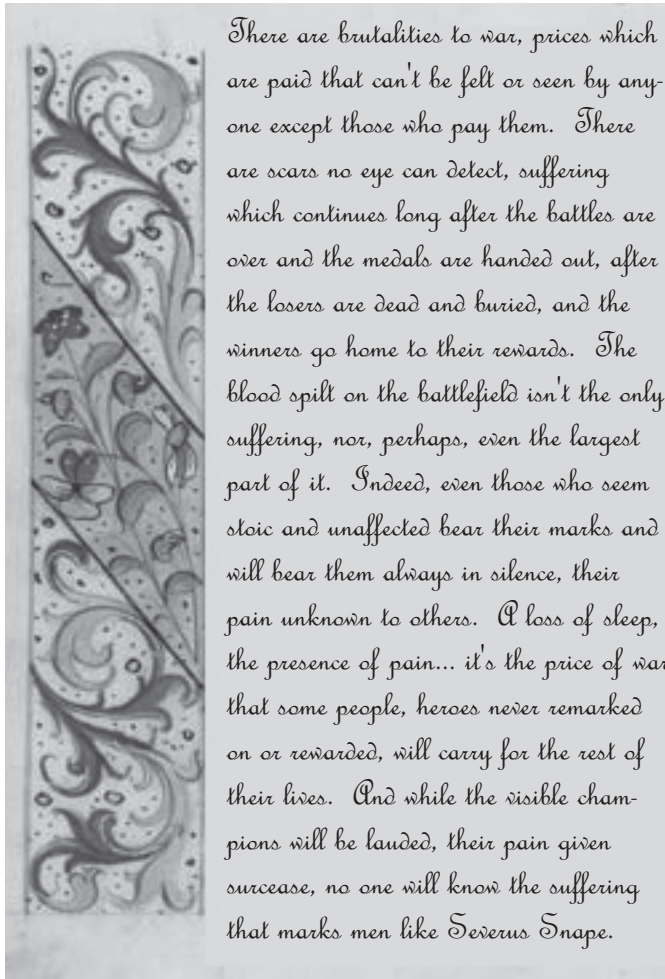 There are brutalities to war, prices which
are paid that can't be felt or seen by any-
one except those who pay them. There
are scars no eye can detect, suffering
which continues long after the battles are
over and the medals are handed out, after
the losers are dead and buried, and the
winners go home to their rewards. The
blood spilt on the battlefield isn't the only
suffering, nor, perhaps, even the largest
part of it. Indeed, even those who seem
stoic and unaffected bear their marks and
will bear them always in silence, their
pain unknown to others. A loss of sleep,
the presence of pain... it's the price of war
that some people, heroes never remarked
on or rewarded, will carry for the rest of
their lives. And while the visible cham-
pions will be lauded, their pain given
surcease, no one will know the suffering
that marks men like Severus Snape.